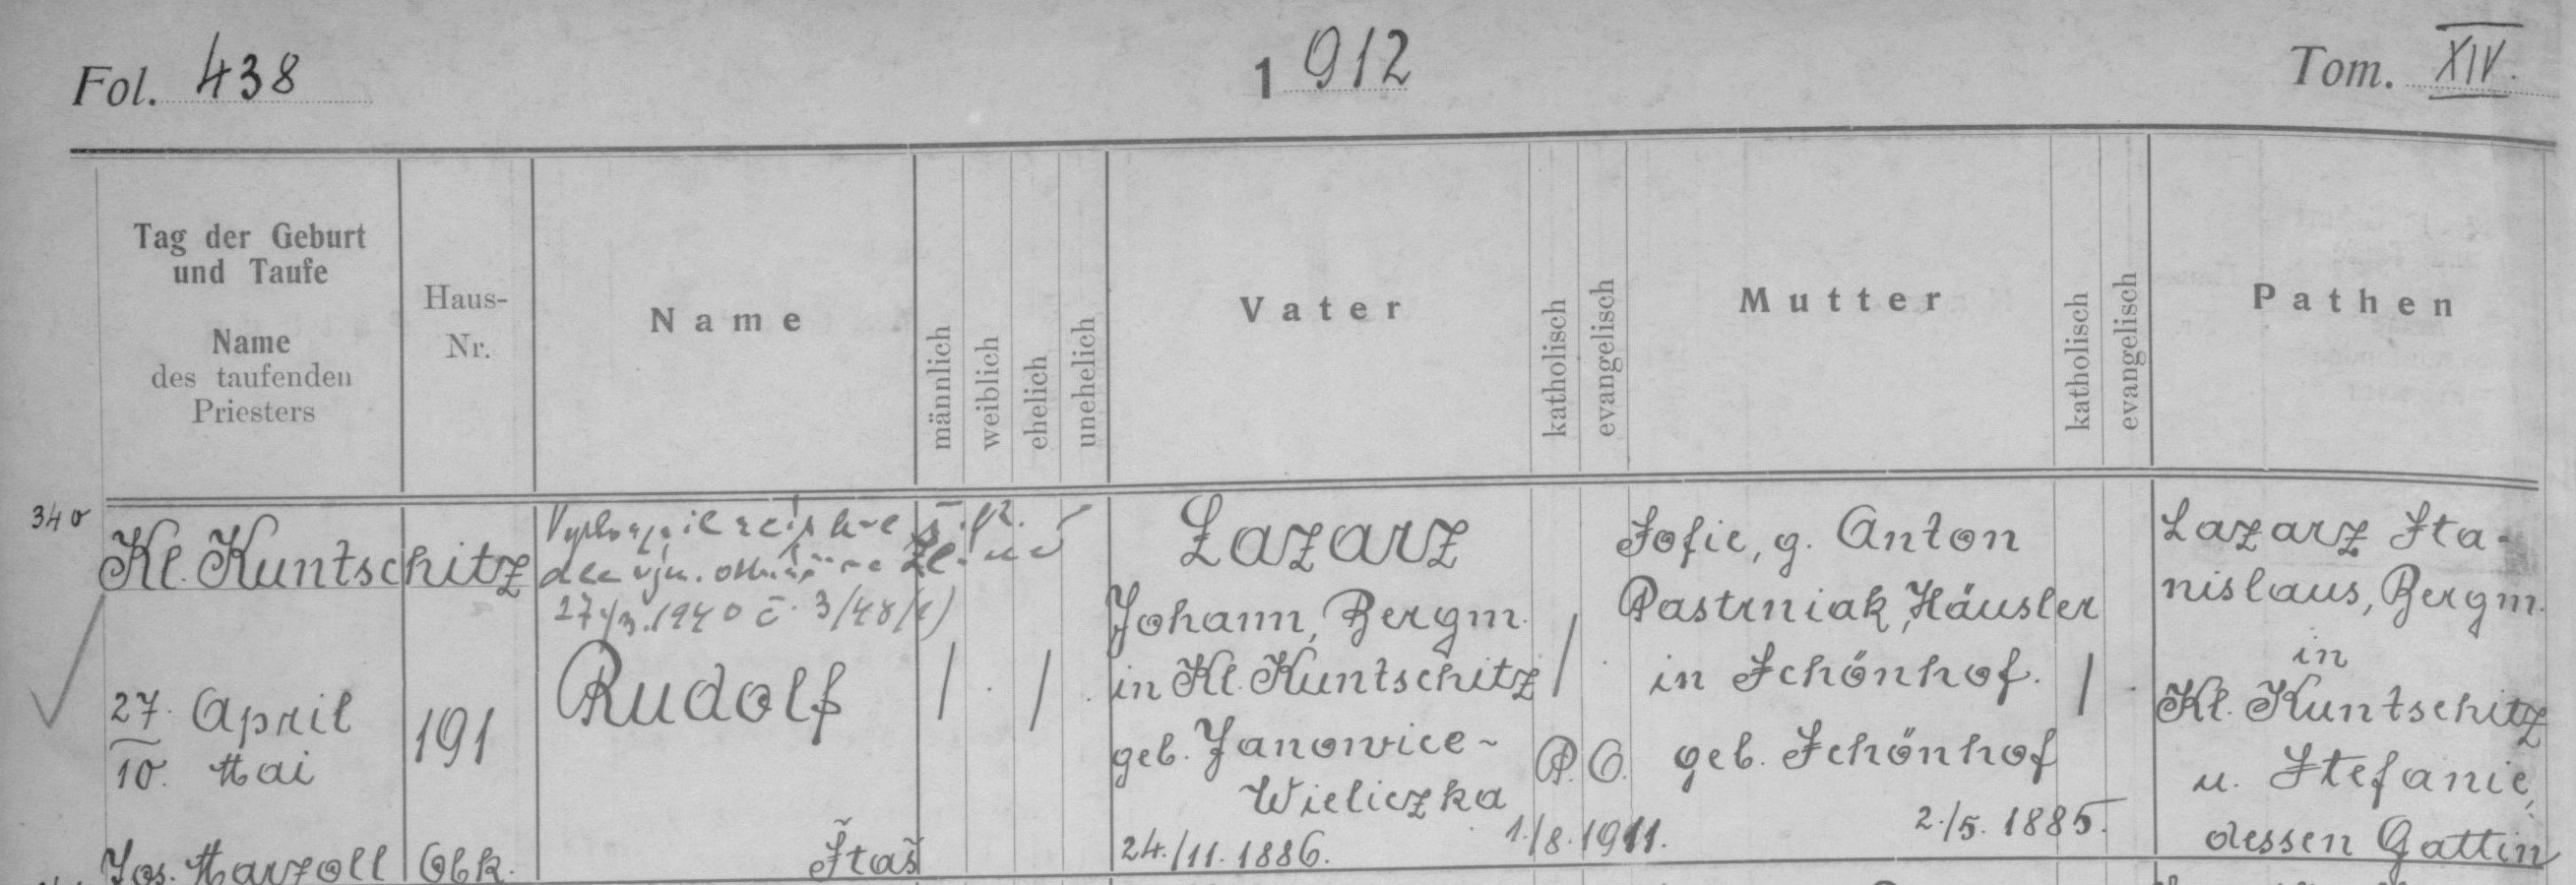 Fol. 438
1912
Tom. XIV.
Tag der Geburt
und Taufe
Name
des taufenden
Priesters
Haus-
Nr.
Name
männlich
weiblich
ehelich
unehelich
Vater
katholisch
evangelisch
Mutter
katholisch
evangelisch
Pathen
340
Kl. Kuntschitz
27. April
10. Mai
Jos. Marzoll
191
Obk.
27./3. 1940 č. 3/48/1)
Rudolf
Staš
Lazarz
Johann, Bergm.
in Kl. Kuntschitz
geb. Janowice-
Wieliczka
24./11. 1886.
P. C.
1./8. 1911.
Sofie, g. Anton
Pastrniak, Häusler
in Schönhof.
geb. Schönhof
2./5. 1885.
Lazarz Sta-
nislaus, Bergm.
in
Kl. Kuntschitz
u. Stefanie,
dessen Gattin